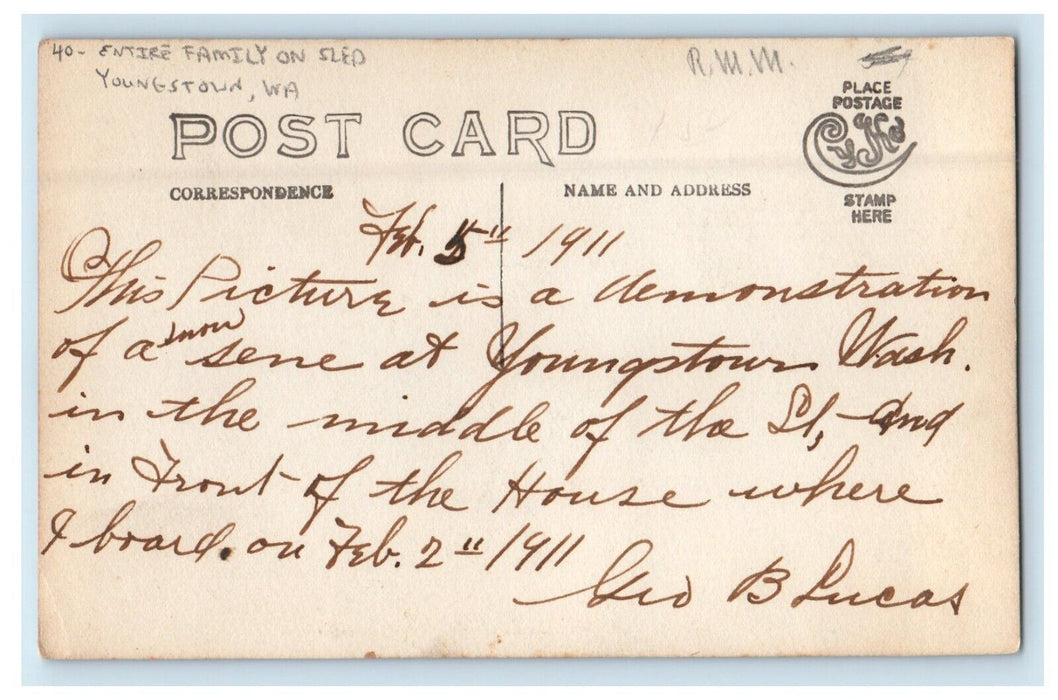 40- ENTIRE FAMILY ON SLED
YOUNGSTOWN, WA
R.M.M.
POST CARD
PLACE
POSTAGE
CYKO
STAMP
HERE
CORRESPONDENCE
NAME AND ADDRESS
Feb. 5" 1911
This Picture is a demonstration
of a snow sene at Youngstown Wash.
in the middle of the St, and
in Front of the House where
I board. on Feb. 2" 1911
Geo B Lucas